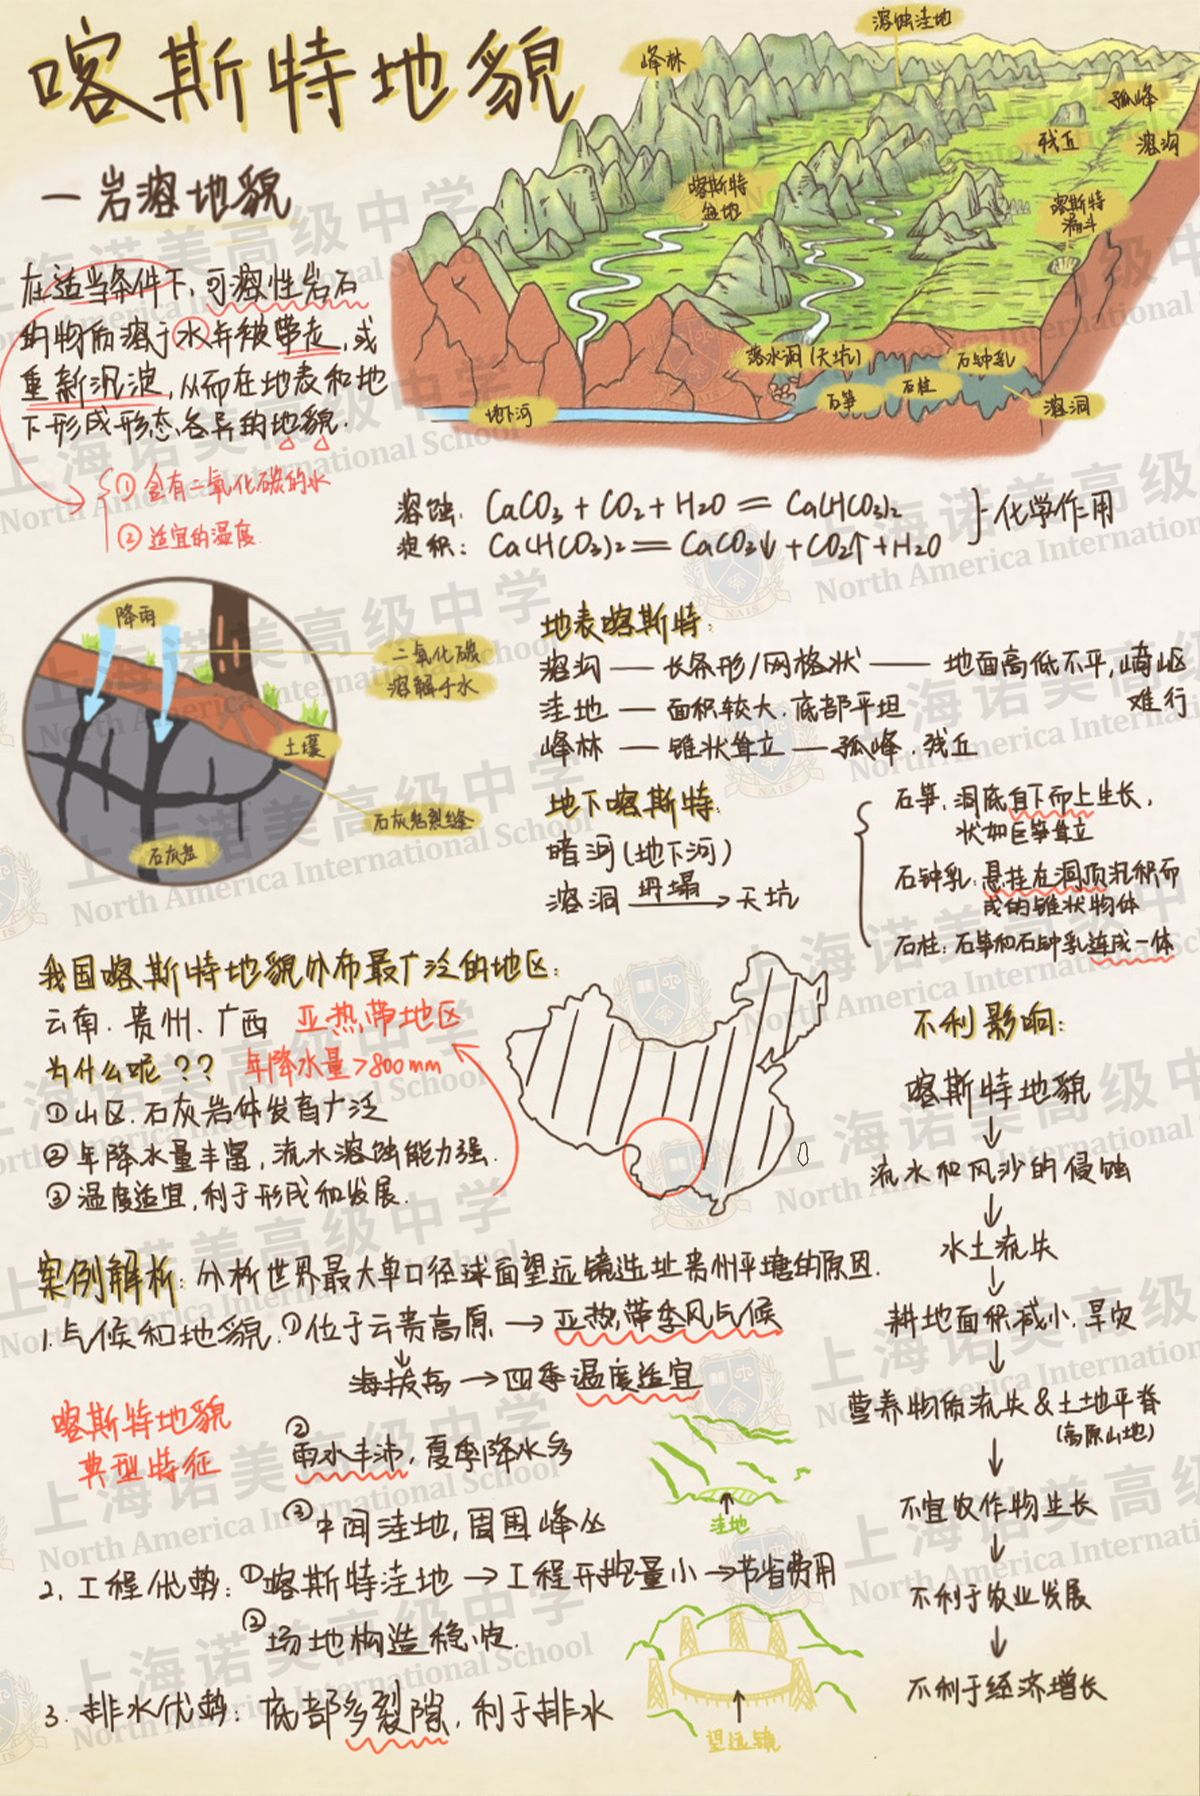 喀斯特地貌
—岩溶地貌
在适当条件下,可溶性岩石
的物质溶于水并被带走,或
重新沉淀,从而在地表和地
下形成形态各异的地貌.
①含有二氧化碳的水
②适宜的温度.
溶蚀洼地
峰林
孤峰
残丘
溶沟
喀斯特
盆地
喀斯特
漏斗
落水洞(天坑)
石钟乳
石柱
石笋
溶洞
地下河
溶蚀: CaCO3 + CO2 + H2O = Ca(HCO3)2
淀积: Ca(HCO3)2 = CaCO3↓ + CO2↑ + H2O
}化学作用
降雨
二氧化碳
溶解于水
土壤
石灰岩裂缝
石灰岩
地表喀斯特:
溶沟 — 长条形/网格状 — 地面高低不平,崎岖
难行
洼地 — 面积较大.底部平坦
峰林 — 锥状耸立 — 孤峰.残丘
地下喀斯特:
暗河(地下河)
溶洞 坍塌→ 天坑
石笋:洞底自下而上生长,
状如巨笋耸立
石钟乳:悬挂在洞顶沉积而
成的锥状物体
石柱:石笋和石钟乳连成一体
我国喀斯特地貌分布最广泛的地区:
云南.贵州、广西 亚热带地区
为什么呢?? 年降水量>800mm
①山区.石灰岩体发育广泛
②年降水量丰富,流水溶蚀能力强.
③温度适宜,利于形成和发展.
不利影响:
喀斯特地貌
↓
流水和风沙的侵蚀
↓
水土流失
↓
耕地面积减小.旱灾
↓
营养物质流失&土地平脊
(高原山地)
↓
不宜农作物生长
↓
不利于农业发展
↓
不利于经济增长
案例解析:分析世界最大单口径球面望远镜选址贵州平塘的原因.
1.气候和地貌.①位于云贵高原→亚热带季风气候
↓
海拔高→四季温度适宜
喀斯特地貌
典型特征
②
雨水丰沛,夏季降水多
③中间洼地,周围峰丛
洼地
2.工程优势:①喀斯特洼地→工程开挖量小→节省费用
②场地构造稳定.
3.排水优势:底部多裂隙,利于排水
望远镜
上海诺美高级中学
North America International School
NAIS